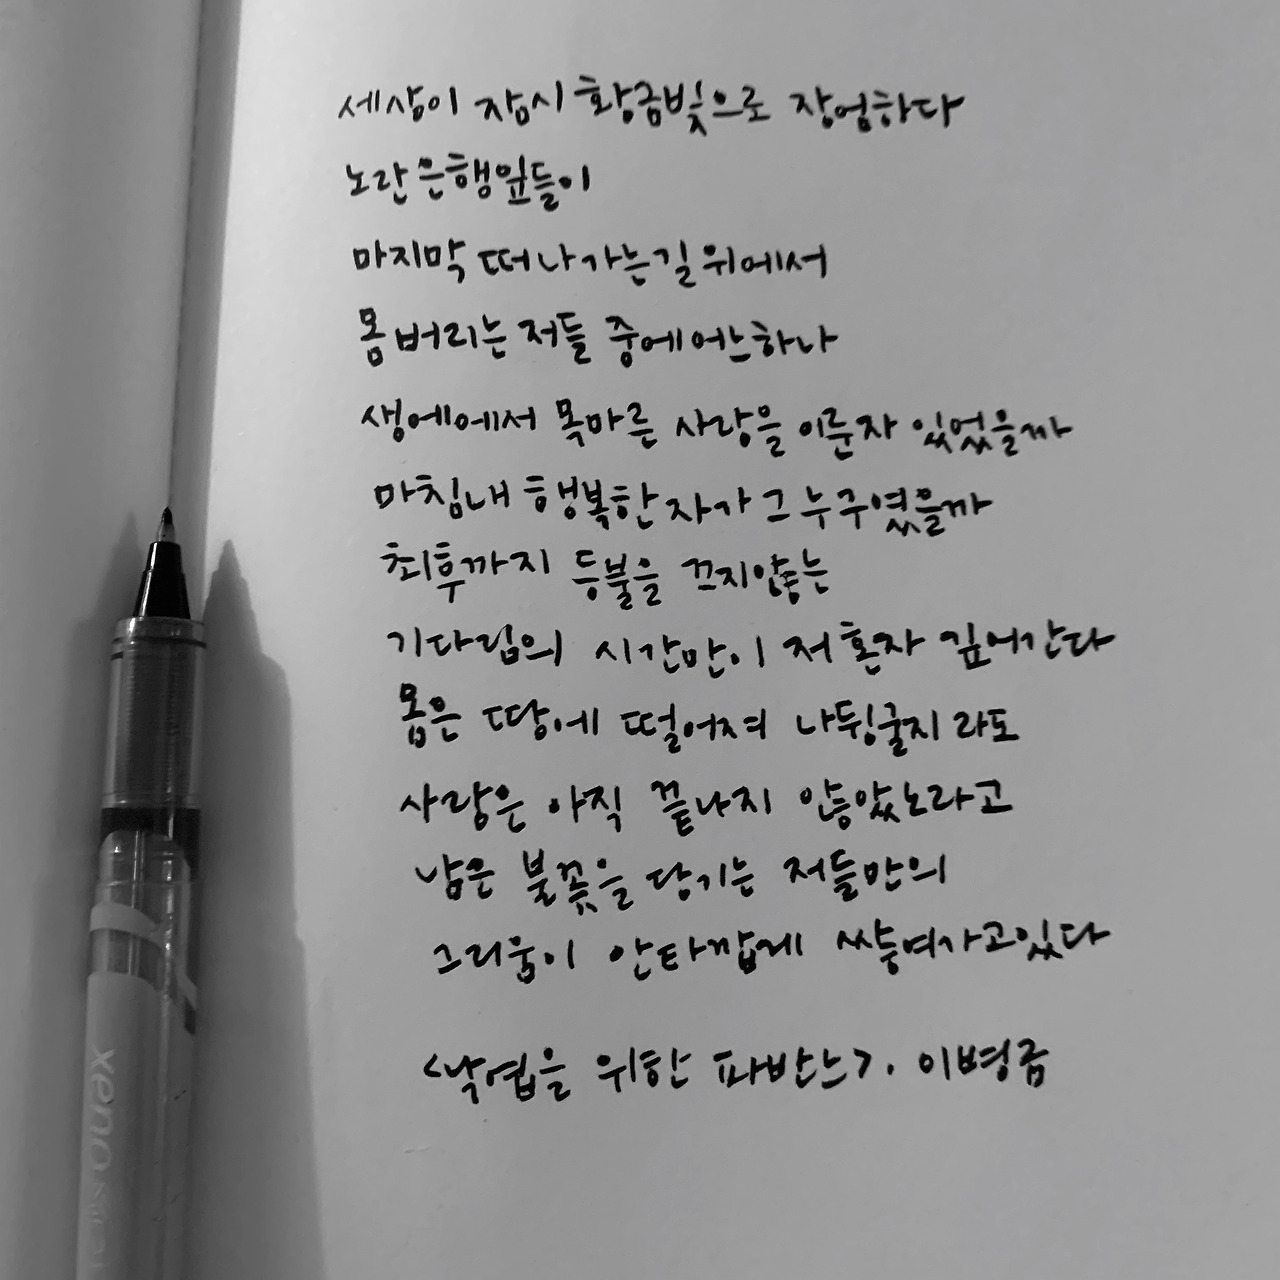 세상이 잠시 황금빛으로 장엄하다
노란 은행잎들이
마지막 떠나가는 길 위에서
몸 버리는 저들 중에 어느 하나
생에에서 목마른 사랑을 이룬 자 있었을까
마침내 행복한 자가 그 누구였을까
최후까지 등불을 끄지 않는
기다림의 시간만이 저 혼자 깊어간다
몸은 땅에 떨어져 나뒹굴지라도
사랑은 아직 끝나지 않았노라고
남은 불꽃을 당기는 저들만의
그리움이 안타깝게 쌓여가고 있다
<낙엽을 위한 파반느>. 이병금
xeno